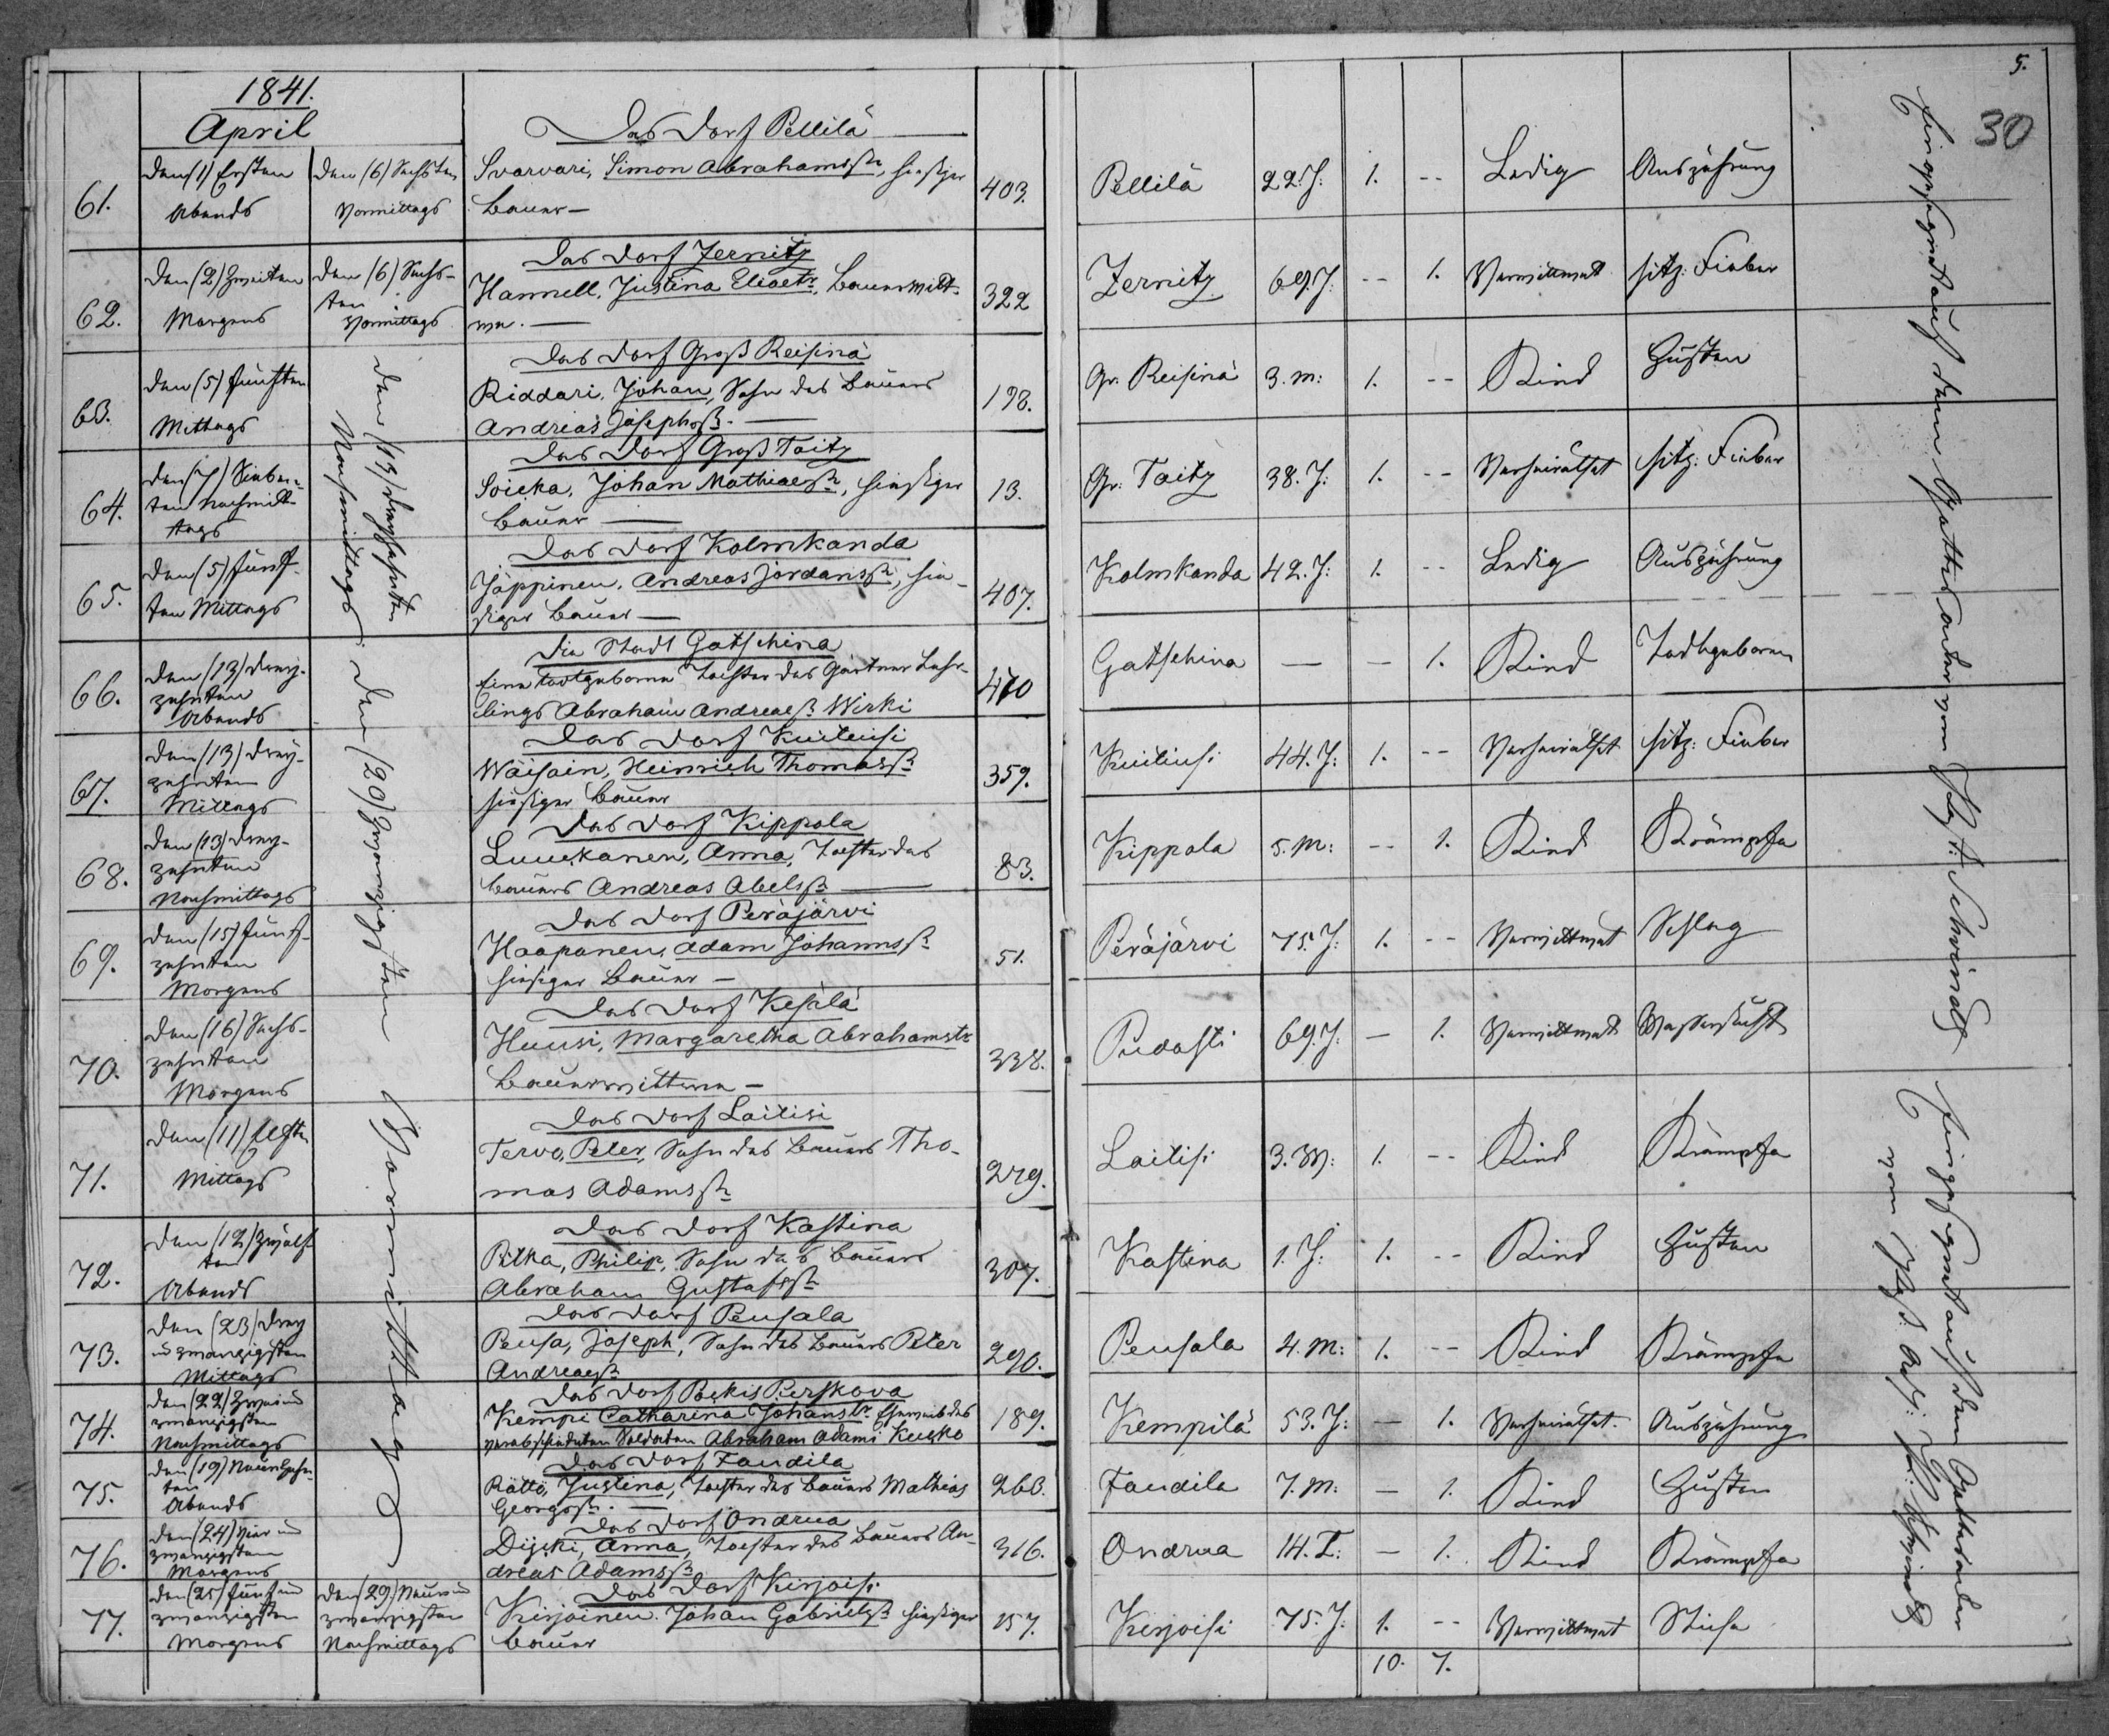 1841.
April
Das Dorf Pellilä
61. den (1) Ersten Abends
den (6) Sechsten Vormittags
Svarvari, Simon Abrahamssh, hiesiger
Bauer —
403.
Pellilä 22. J: 1. -- Ledig Auszehrung
Das Dorf Zernitz
62. den (2) Zweiten Morgens
den (6) Sechs-
ten Vormittags
Hannell, Justina Eliaetr, Bauerwitt-
we. —
322
Zernitz 69. J: -- 1. Verwittwet hitz: Fieber
Das Dorf Groß Reisinä
63. den (5) fünften Mittags
den (13) dreyzehnten Nachmittags
Riddari, Johan, Sohn des Bauers
Andreas Josephsß. —
198.
Gr. Reisinä 3. m: 1. -- Kind Husten
Das Dorf Groß Taitz
64. den (7) Sieben-
ten Nachmit-
tags
Soicka, Johan Mathiaeßh, hiesiger
Bauer —
13.
Gr: Taitz 38. J: 1. -- Verheirathet hitz: Fieber
Das Dorf Kolmkanda
65. den (5) fünf-
ten Mittags
Jäppinen, Andreas Jordanssh, hie-
siger Bauer —
407.
Kolmkanda 42. J: 1. -- Ledig Auszehrung
Die Stadt Gatschina
66. den (13) drey-
zehnten
Abends
den (20) Zwanzigsten Vormittags
Eine todtgeborne Tochter des Gärtner Lehr-
lings Abraham Andreaeß Wirki
470
Gatschina — — 1. Kind Todtgeboren
Das Dorf Kuiliusi
67. den (13) drey-
zehnten
Mittags
Wäisäin, Heinrich Thomasß
hiesiger Bauer
359.
Kuiliusi 44. J: 1. -- Verheirathet hitz: Fieber
Das Dorf Kippola
68. den (13) drey-
zehnten
Nachmittags
Luuckanen, Anna, Tochter des
Bauers Andreas Abelsß —
83.
Kippola 5. m: -- 1. Kind Krämpfe
Das Dorf Peräjärvi
69. den (15) fünf-
zehnten
Morgens
Haapanen, Adam Johannsß
hiesiger Bauer —
51.
Peräjärvi 75. J: 1. -- Verwittwet Schlag
Das Dorf Kesälä
70. den (16) Sechs-
zehnten
Morgens
Huusi, Margaretha Abrahamstr
Bauerwittwe —
338.
Pudosti 69. J: — 1. Verwittwet Wassersucht
Das Dorf Lailisi
71. den (11) Elften
Mittags
Tervo, Peter, Sohn des Bauers Tho-
mas Adamssh
279.
Lailisi 3. W: 1. -- Kind Krämpfe
Das Dorf Kastina
72. den (12) Zwölf-
ten
Abends
Pitka, Philip, Sohn des Bauers
Abraham Gustafssh
307.
Kastina 1. J: 1. -- Kind Husten
Das Dorf Peusala
73. den (23) drey
u zwanzigsten
Mittags
Peusa, Joseph, Sohn des Bauers Peter
Andreaeß
290.
Peusala 4. m: 1. -- Kind Krämpfe
Das Dorf Packis Perskova
74. den (22) Zwei und
zwanzigsten
Nachmittags
Kempi Catharina Johanstr Eheweib des
verabschiedeten Soldaten Abraham Adami Keesko
189.
Kempilä 53. J: — 1. Verheirathet. Auszehrung
Das Dorf Taudila
75. den (19) Neunzehn-
ten
Abends
Rättö, Justina, Tochter des Bauers Mathias
Georgssh. —
260.
Taudila 7. m: — 1. Kind Husten
Das Dorf Ondrua
76. den (24) Vier und
zwanzigsten
Morgens
Anna, Tochter des Bauers An-
dreas Adamsß
316.
Ondrua 14. T: — 1. Kind Krämpfe
Das Dorf Kirjoisi
77. den (25) fünf und
zwanzigsten
Morgens
den (29) Neun und
zwanzigsten
Nachmittags
Kirjoinen Johan Gabrielsß hiesiger
Bauer
157.
Kirjoisi 75. J: 1. -- Verwittwet
10. 7.
5.
30
Eingesegnet auf dem Gottesacker vom Past: Schvindt
Eingesegnet auf dem Gottesacker
vom Past: Adj: Schvindt